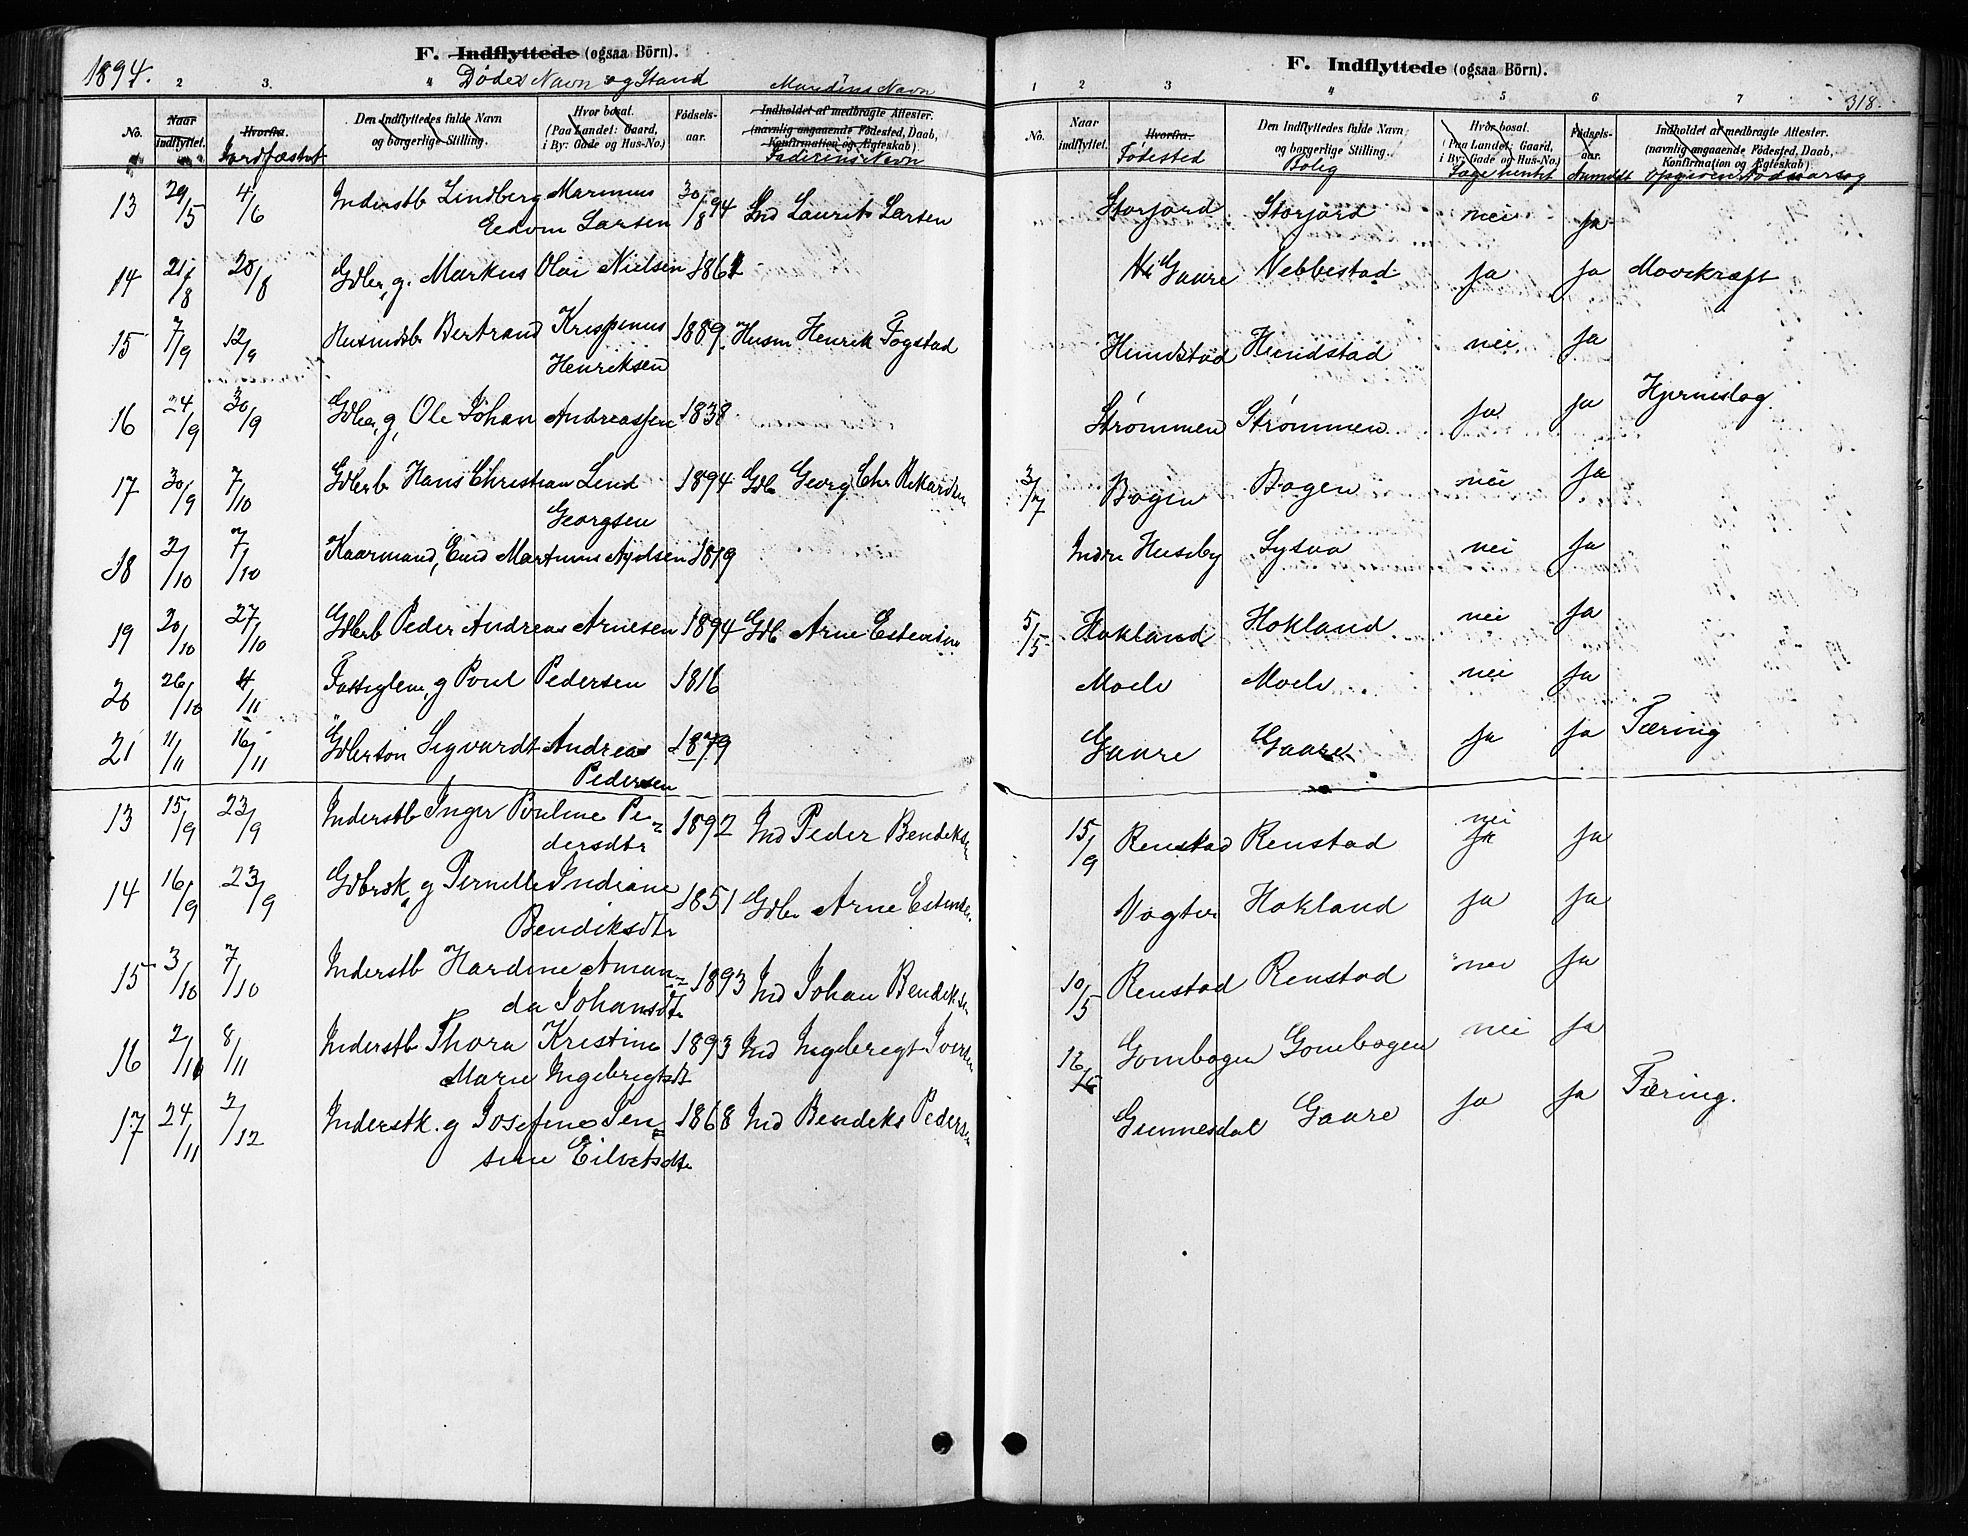 1894.
F. Indflyttede (ogsaa Börn).
Dødes Navn og Stand
Mandens Navn
2 3. 4
No.
Naar indflyttet.
Hvorfra.
Jordfæstet
Den Indflyttedes fulde Navn og borgerlige Stilling.
Hvor bosat. (Paa Landet: Gaard, i By: Gade og Hus-No.)
Födsels-aar.
Indholdet af medbragte Attester. (navnlig angaaende Födested, Daab, Konfirmation og Ægteskab).
Faderens Navn
F. Indflyttede (ogsaa Börn).
318.
1 2 3 4 5 6 7
No.
Naar indflyttet.
Hvorfra.
Fødested
Den Indflyttedes fulde Navn og borgerlige Stilling.
Bolig
Hvor bosat. (Paa Landet: Gaard, i By: Gade og Hus-No.)
Læge hentet
Födsels-aar.
Anmeldt
Indholdet af medbragte Attester. (navnlig angaaende Födested, Daab, Konfirmation og Ægteskab).
Opgiven Dødsaarsag
13 29/5 4/6 Inderstb Lindberg Marinus 30/8 94 Ind Laurits Larsen Storjord Storjord nei ja
Edvin Larsen
14 21/8 28/8 Gdbr, g. Markus Olai Nielsen 1861 Gaare Nebbestad ja ja Mavekræft
15 7/9 12/9 Husmdsb Bertrand Krispinus 1889. Husm Henrik Fogstad Hundstad Hundstad nei ja
Henriksen
16 24/9 30/9 Gdbr, g, Ole Johan Andreassen 1838. Strømmen Strømmen ja ja Hjerneslag.
17 30/9 7/10 Gdbrb Hans Christian Lind 1894 Gdb Georg Chr Rikardsen 3/7 Bogen Bogen nei ja
Georgsen
18 2/10 7/10 Kaarmand, End Martinus 1819 Indre Huseby nei ja
19 20/10 27/10 Gdbrb Peder Andreas Arnesen 1894 Gdb Arne Estensen 5/5 Hokland Hokland nei ja
20 26/10 4/11 Fattiglem, g Poul Pedersen 1816 Moelv Moelv nei ja
21 11/11 16/11 Gdbrsøn Sigvardt Andreas 1879 Gaare Gaare ja ja Tæring
Pedersen
13 15/9 23/9 Inderstb Inger Pouline Pe- 1892 Ind Peder Bendiksen 15/9 Renstad Renstad nei ja ja
dersdtr
14 16/9 23/9 Gdbrsk, g Pernelle Indiane 1851 Gdbr Arne Estensen Vogter Hokland ja ja
Bendiksdtr
15 3/10 7/10 Inderstb Hardine Aman- 1893 Ind Johan Bendiksen 10/5 Renstad Renstad nei ja
da Johansdtr
16 2/11 8/11 Inderstb Thora Kristine 1893 Ind Ingebregt Iversen Gombogen Gombogen nei ja
Marie Ingebregtsdt
17 24/11 2/12 Inderstk. g Josefine Jen- 1868 Ind Bendeks Pedersen Gunnesdal Gaare ja ja Tæring.
sine Eilertsdtr